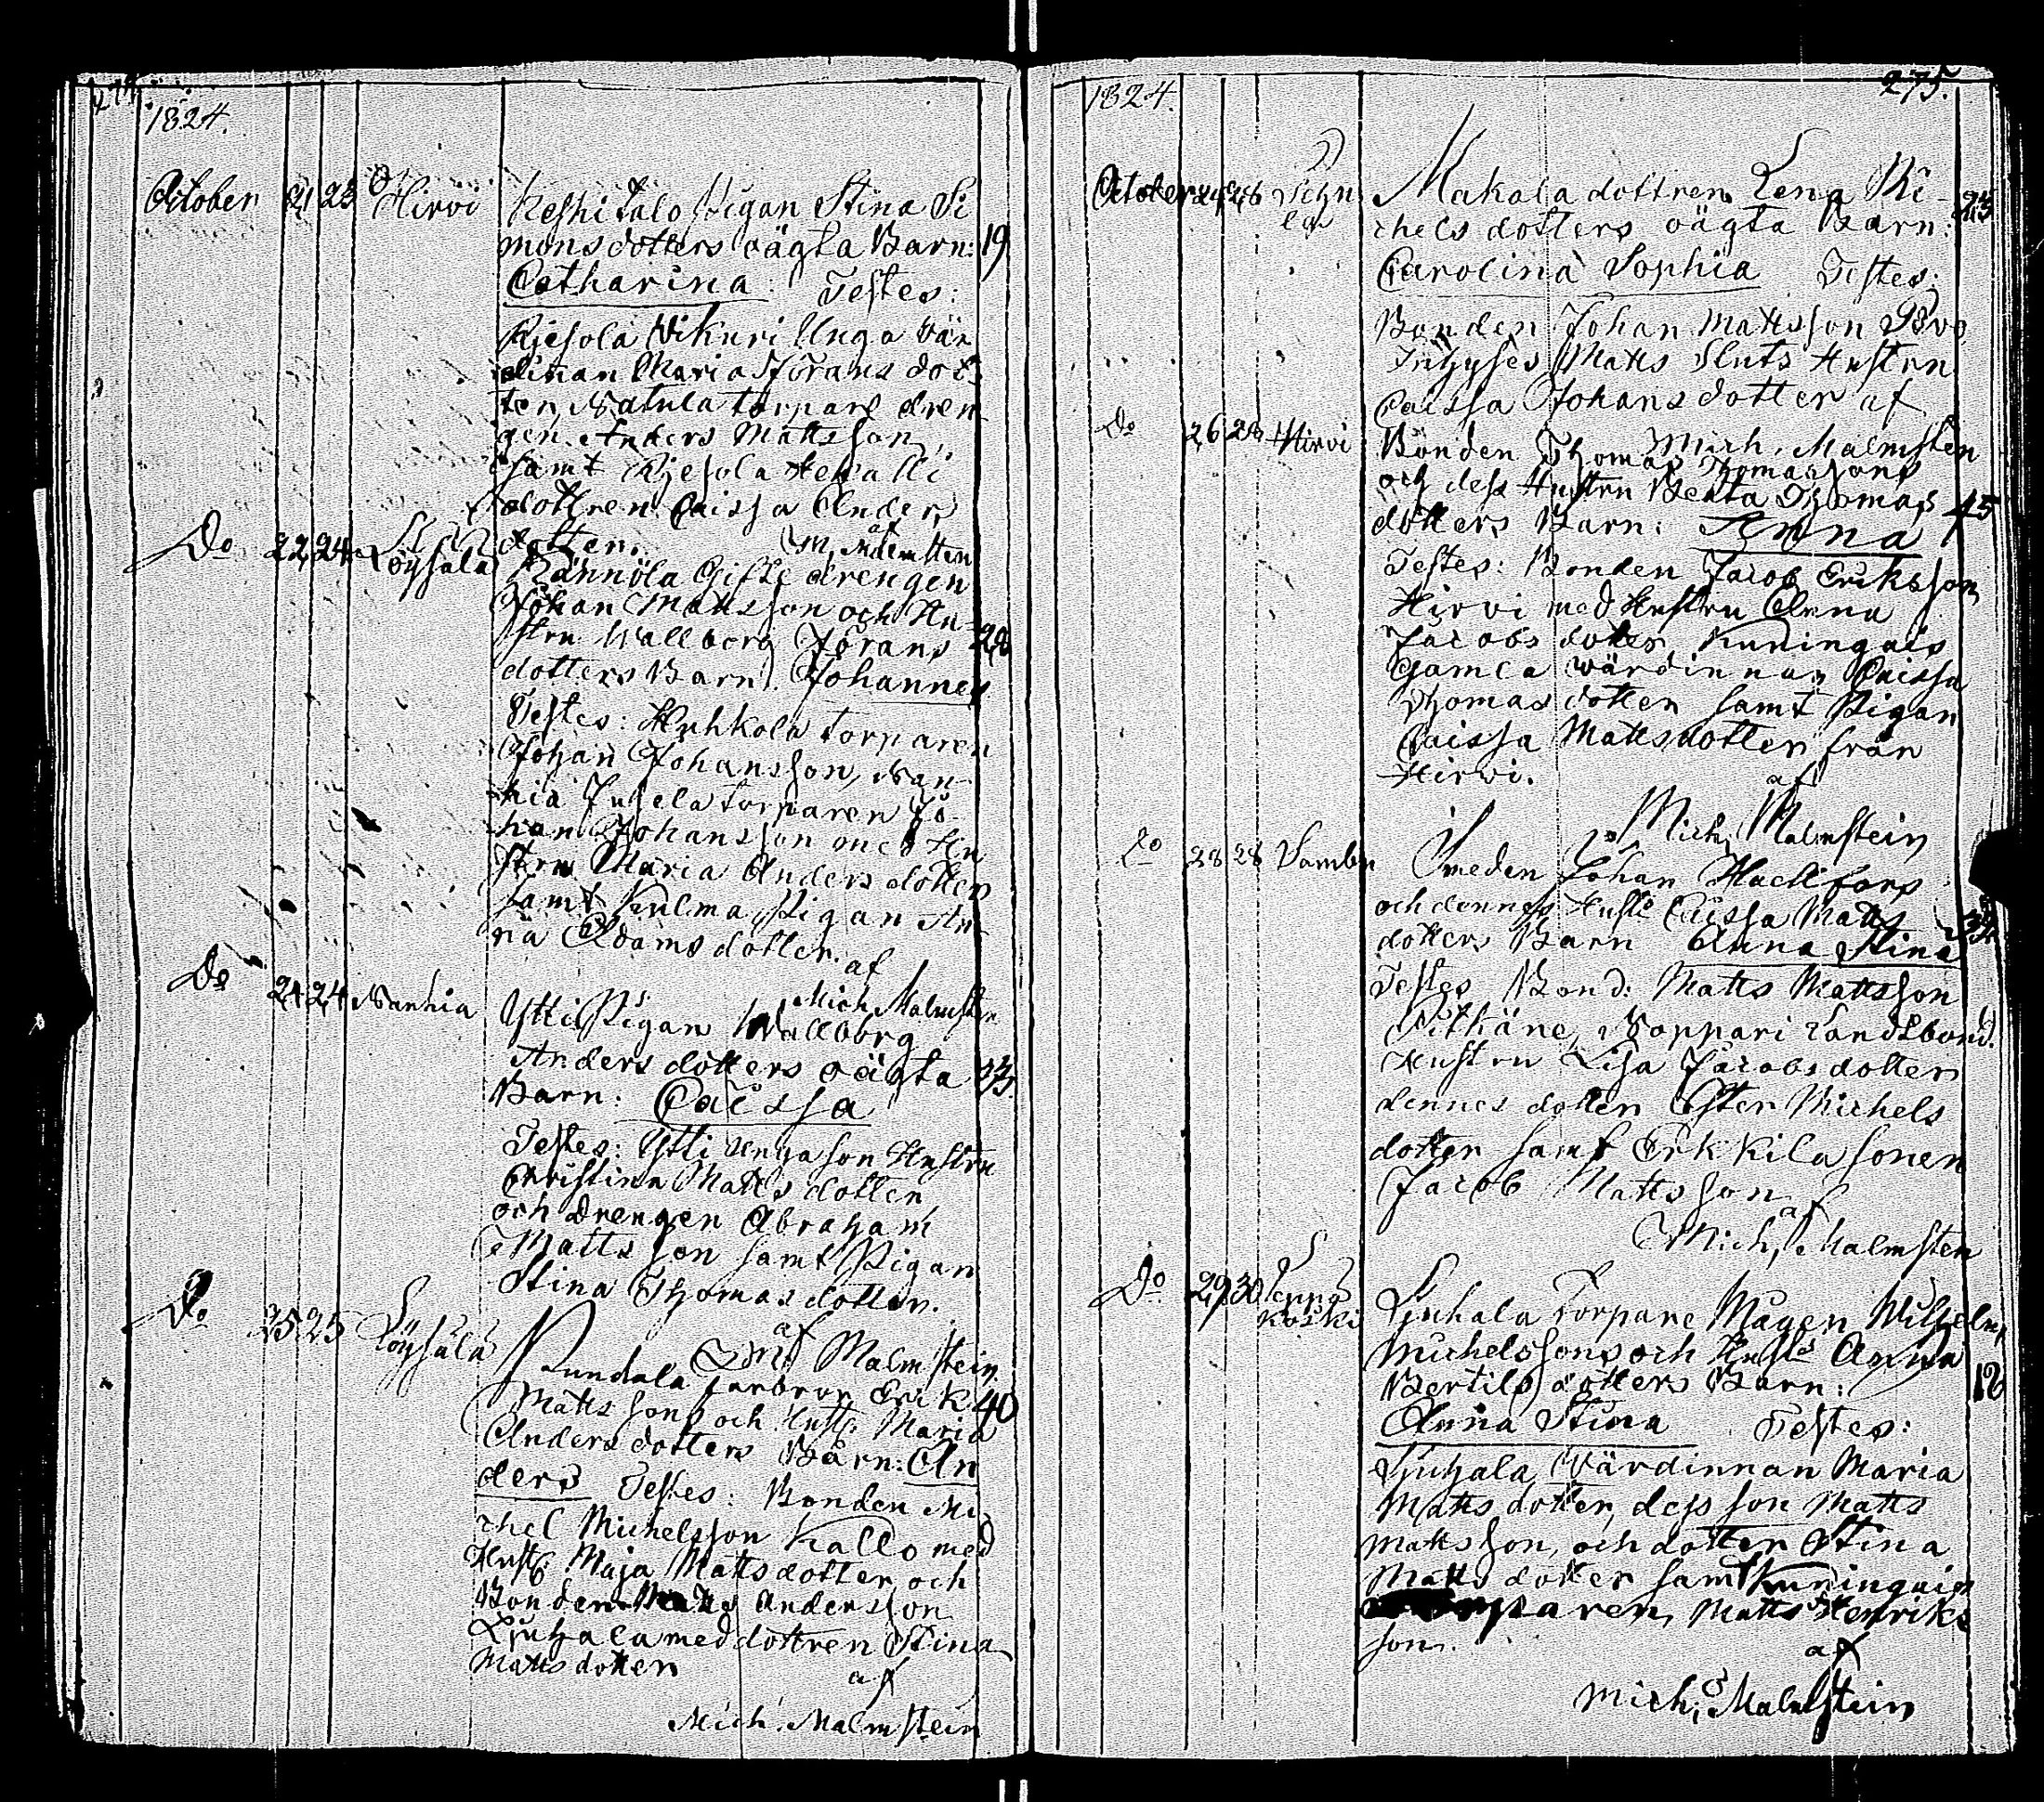 1824.
October 21 23 Hirvi Keskitalo Pigan Stina Si
mons dotters oägta Barn: 19
Catharina: Testes:
Rjesola Wikuri Unga Wär
dinan Maria Jörans dot
ter, Watula torpare dren
gen Anders Mattsson
samt Rjesola Heikkilä
dottren Caissa Anders
dotter. af M. Malmsten
Do 22 24 Löysälä Rännölä Gifte drengen
Johan Mattsson och Hu-
stru Wallborg Jörans 28
dotters Barn. Johannes
Testes: Huhkola torparen
Johan Johansson, Wan-
hia torparen Jo-
han Johansson med Hu
stru Maria Anders dotter
samt Kulma Pigan An-
na Adams dotter. af
Mich. Malmsten
Do 24 24 Wanhia Ytti Pigan Wallborg
Anders dotters oägta 23.
Barn: Caissa
Testes: Ytti unga son Hustru
Christina Matts dotter
och Drengen Abraham
Mattsson samt Pigan
Stina Thomas dotter.
af Malmstein
Do 25 25 Löysälä farbror Erik 40
Mattssons och Hust: Maria
Anders dotters Barn: An
ders Testes: Bonden Mi
chel Michelsson Kallo med
Hust: Maja Matts dotter, och
Bonden Matts Andersson
Liuhala med dottren Stina
Matts dotter af
Mich. Malmstein
1824. 275.
October 24 26 Makala dottren Lena Mi- 23
chels dotters oägta Barn:
Carolina Sophia Testes:
Bonden Johan Mattsson
Inhyses Matts Hustru
Caissa Johans dotter af
Mich. Malmsten
Do 26 28 Hirvi Bonden Thomas Thomassons
och dess Hustru Beata Thomas 45
dotters Barn: Anna
Testes: Bonden Jacob Eriksson
Hirvi med Hustru Anna
Jacobs dotter Kuningais
Gamla wärdinnan Caissa
Thomas dotter samt Pigan
Caissa Mattsdotter från
Hirvi. af
Mich. Malmstein
Do 28 28 Sambu Smeden Johan Hackfors
och dennes Hust: Caissa Matts 34
dotters Barn Anna Stina
Testes Bond: Matts Mattsson
Pitkäne, Woppari Landtbond:
Hustru Lisa Jacobs dotter
dennes dotter Ester Michels
dotter samt Erkkilä sonen
Jacob Mattsson
af
Mich. Malmsten
Do 29 30 Lenna
koski Liuhala Torpare Mågen Wilhelm
Michelssons och Hust: Anna
Bertils dotters Barn: 18
Anna Stina Testes:
Liuhala Wärdinnan Maria
Matts dotter, dess son Matts
Mattsson, och dotter Stina
Matts dotter samt Kuningais
torparen, Matts Henriks
son. af
Mich. Malmstein